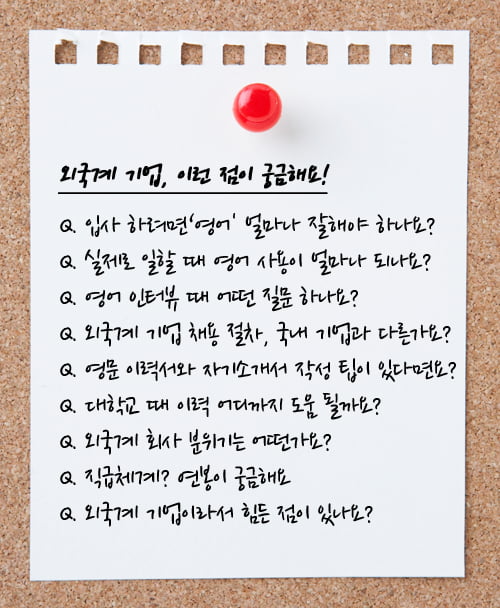 외국계 기업, 이런 점이 궁금해요!
Q. 입사 하려면 '영어' 얼마나 잘해야 하나요?
Q. 실제로 일할 때 영어 사용이 얼마나 되나요?
Q. 영어 인터뷰 때 어떤 질문 하나요?
Q. 외국계 기업 채용 절차, 국내 기업과 다른가요?
Q. 영문 이력서와 자기소개서 작성 팁이 있다면요?
Q. 대학교 때 이력 어디까지 도움 될까요?
Q. 외국계 회사 분위기는 어떤가요?
Q. 직급체계? 연봉이 궁금해요
Q. 외국계 기업이라서 힘든 점이 있나요?